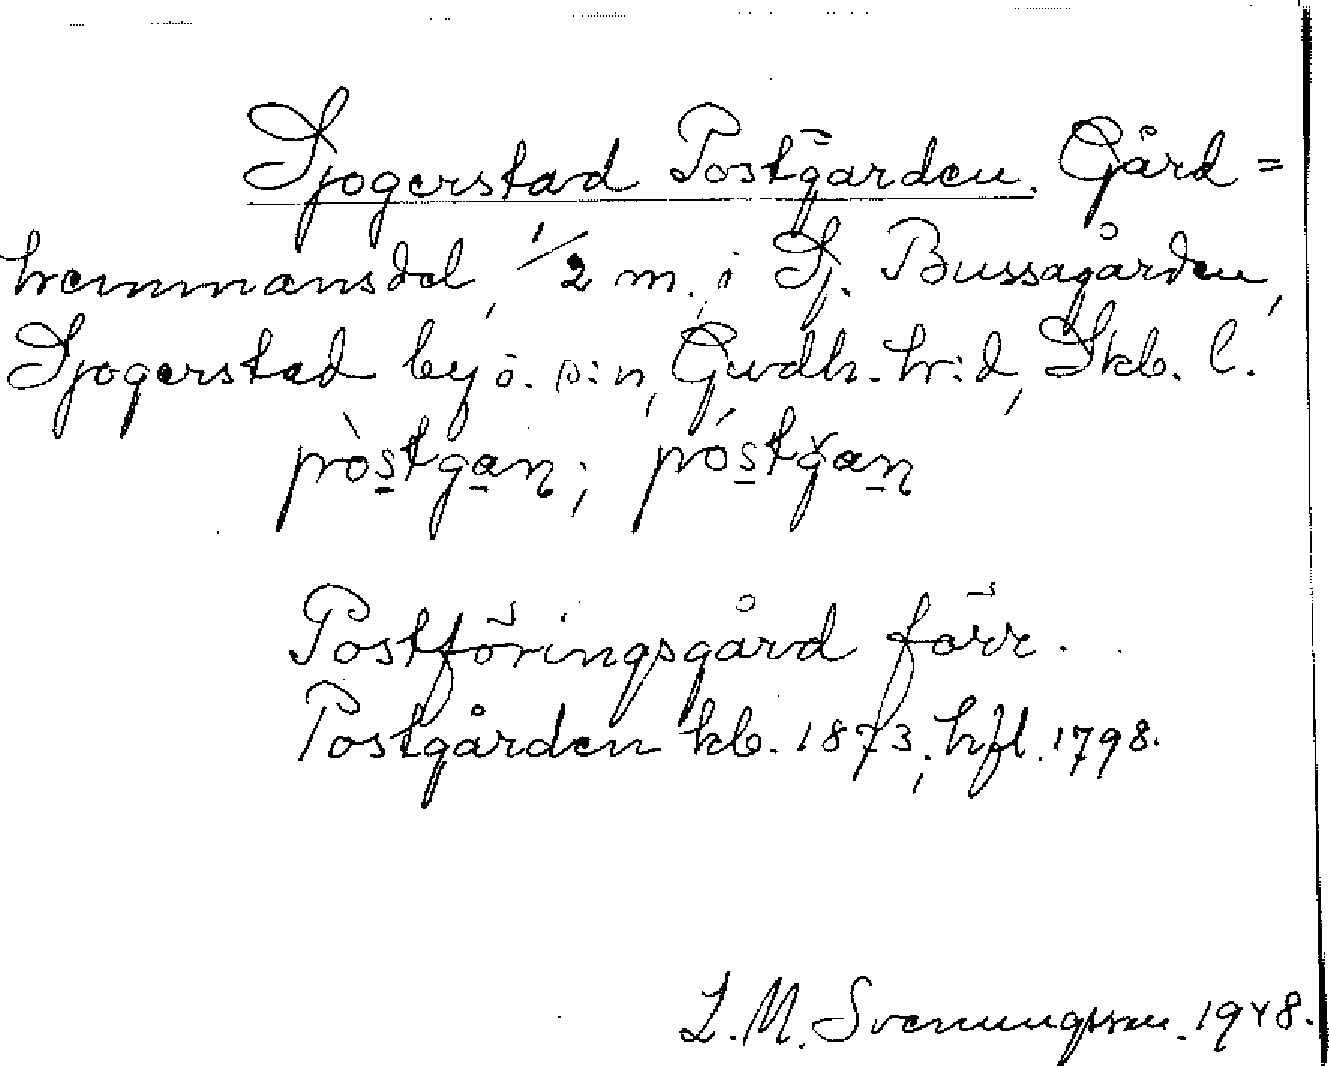 Sjogerstad Postgården. Gård=
hemmansdel, 1/2 m., i Sj. Bussagården,
Sjogerstad by o. s:n, Gudh. h:d, Skb. l.
pòstgan; póstgan
Postföringsgård förr.
Postgården kb. 1873; hfl. 1798.
L. M. Svenungsson. 1948.